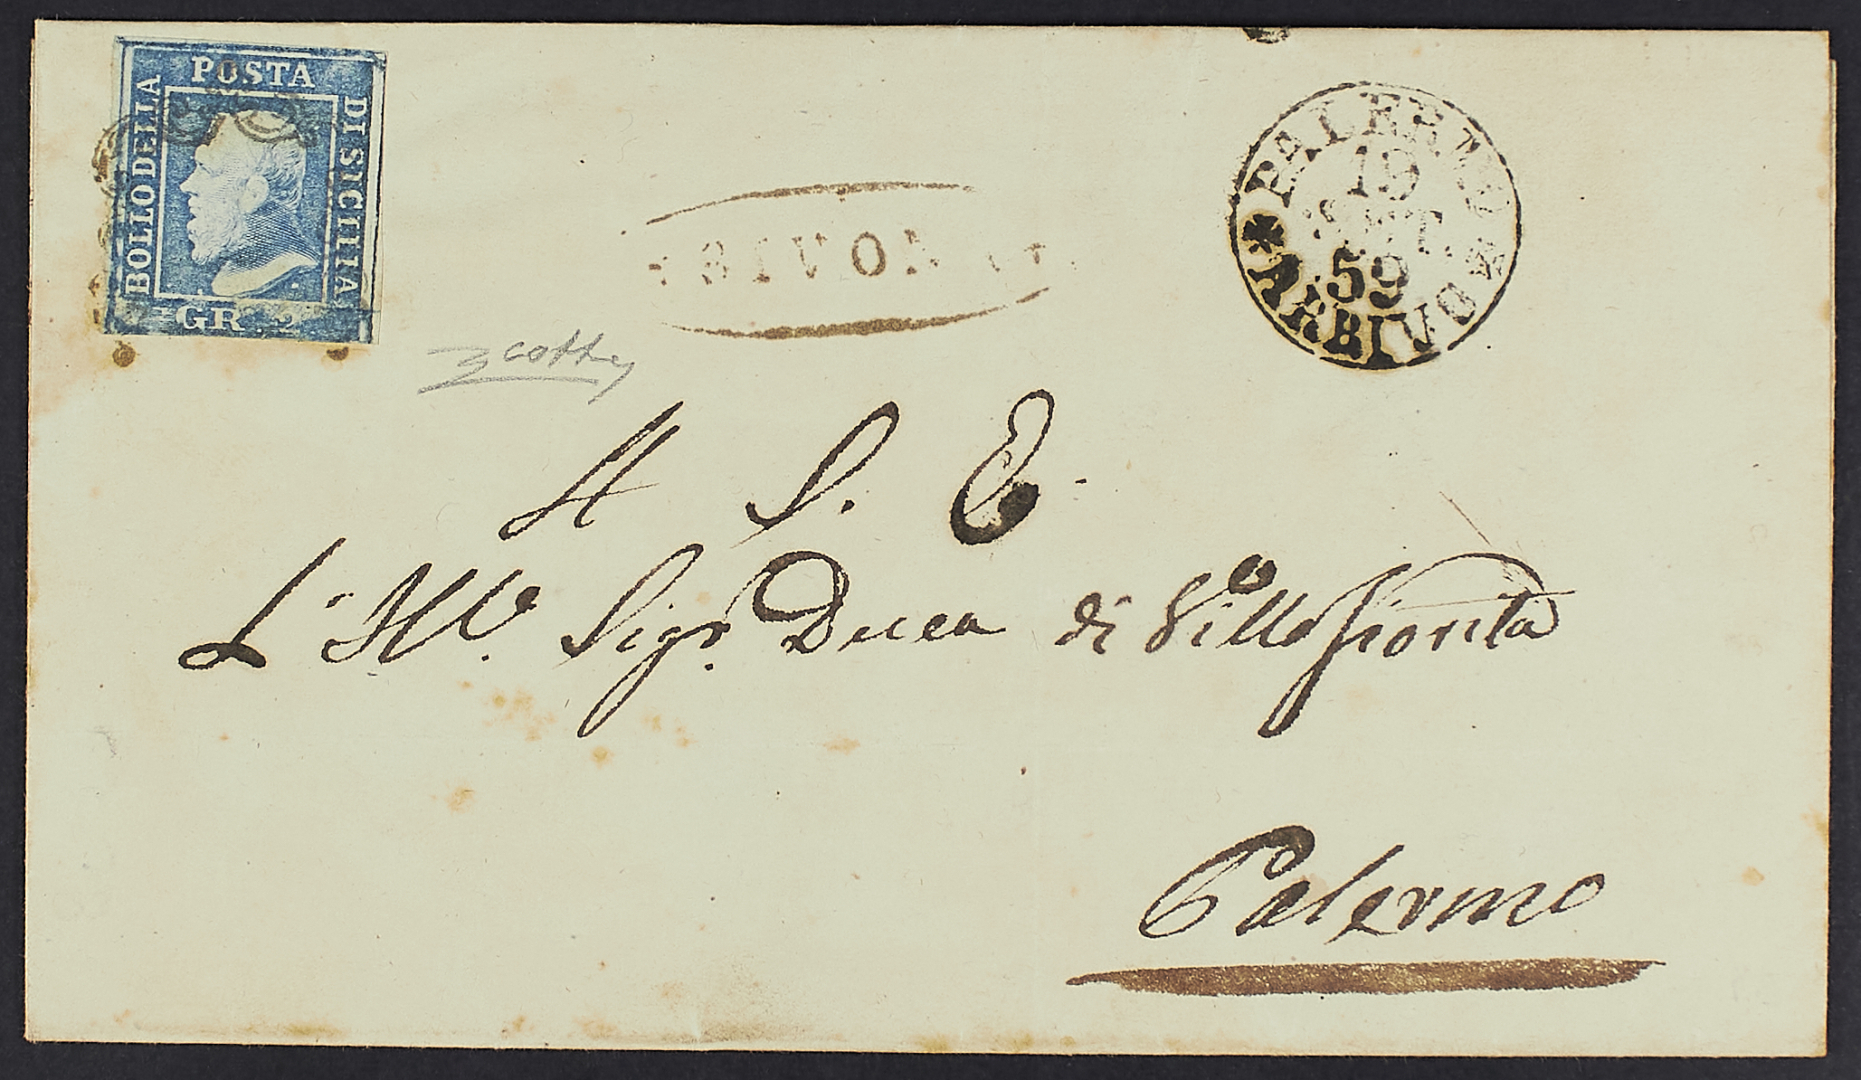 POSTA
BOLLO DELLA
DI SICILIA
GR. 2
BIVON
PALERMO
19
SET.
59
ARRIVO
A S. E.
L' Ill.e Sigr. Duca di Villafiorita
Palermo